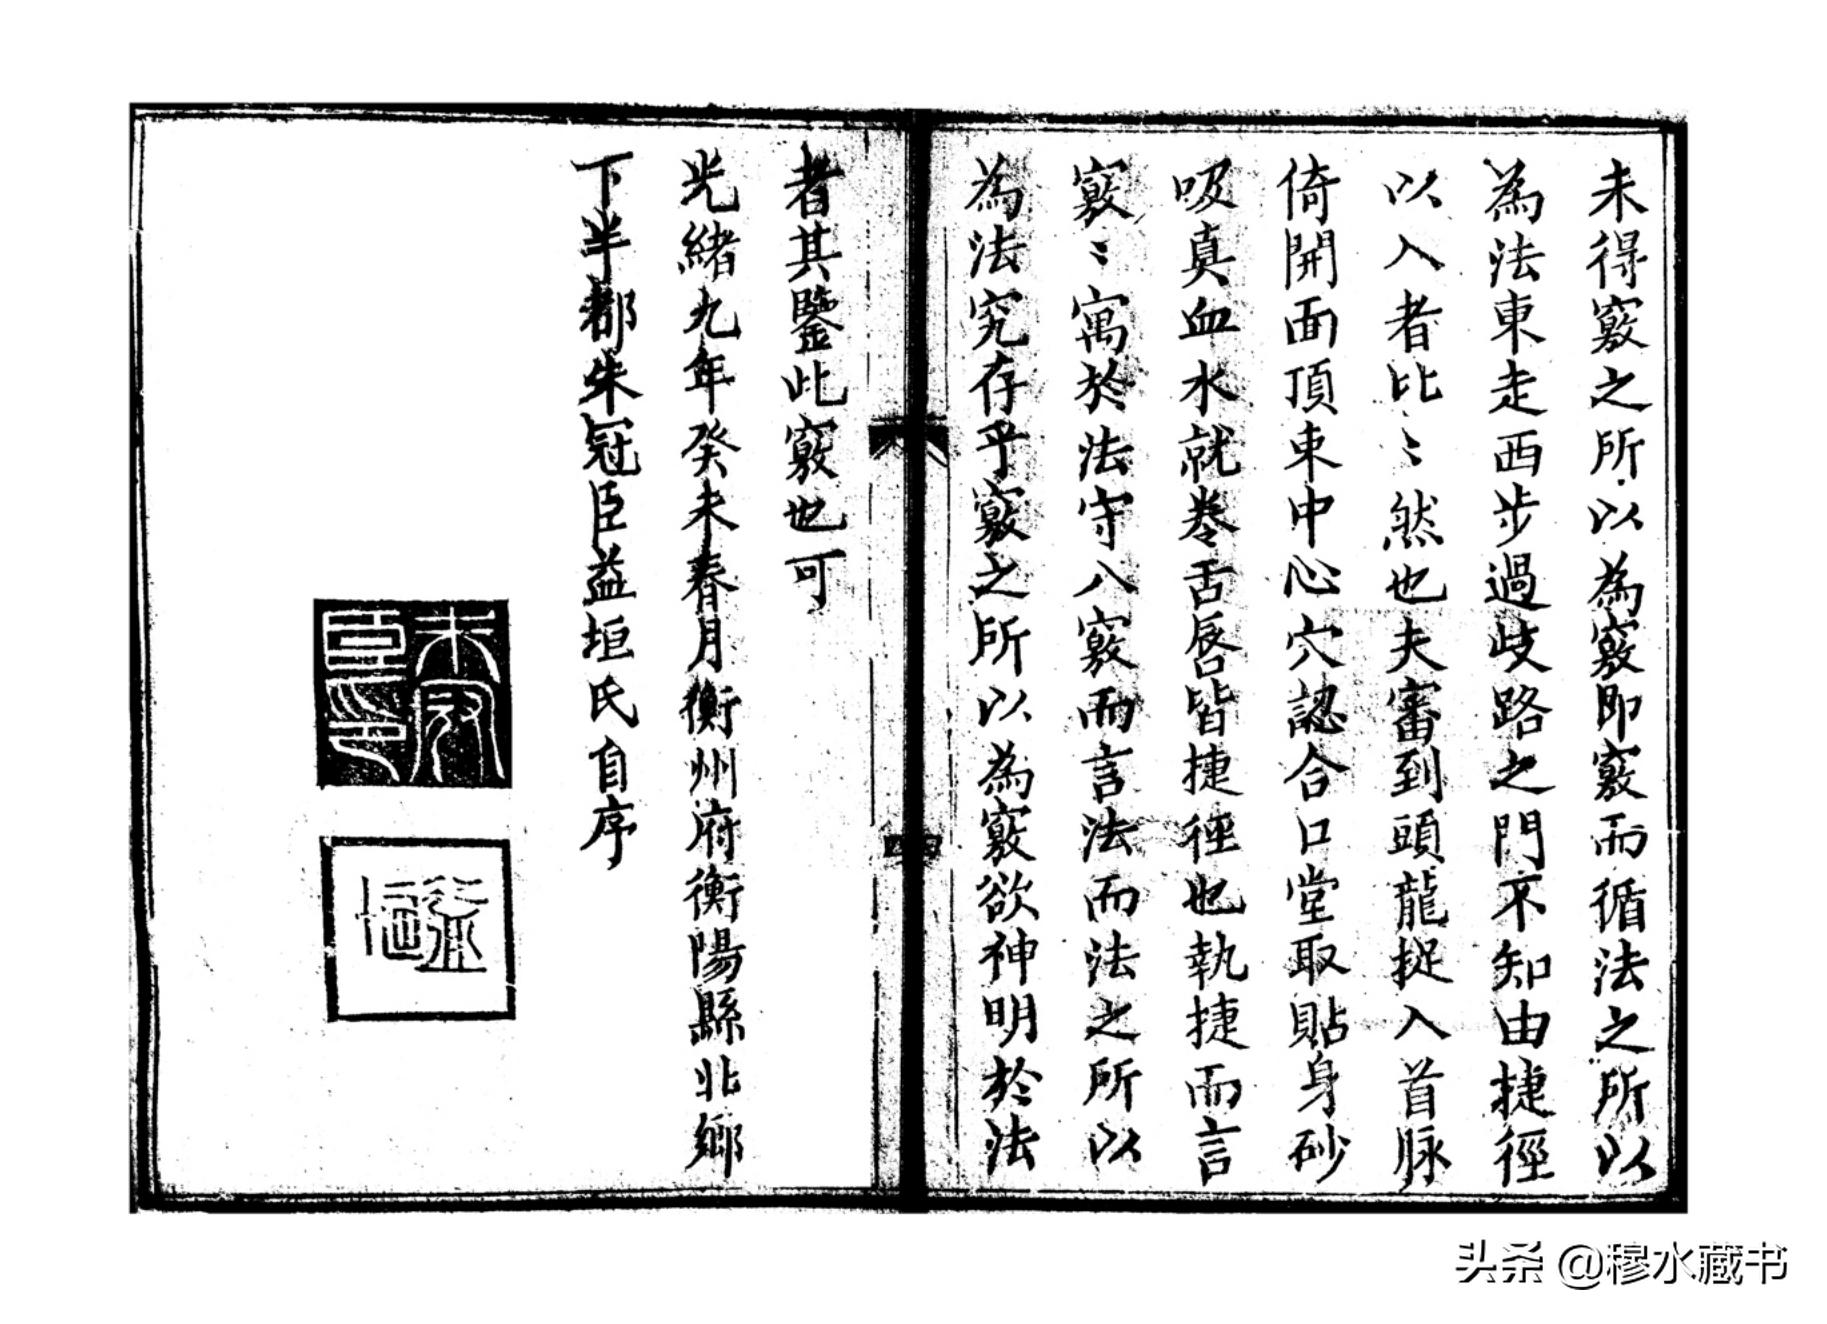 未得竅之所以為竅即竅而循法之所以
為法東走西步過歧路之門不知由捷徑
以入者比〻然也夫審到頭龍捉入首脉
倚開面頂東中心穴認合口堂取貼身砂
吸真血水就卷舌唇皆捷徑也執捷而言
竅〻寓於法守八竅而言法而法之所以
為法究存乎竅之所以為竅欲神明於法
者其鑒此竅也可
光緒九年癸未春月衡州府衡陽縣北鄉
下半都朱冠臣益垣氏自序
朱冠臣印
益垣
头条 @穆水藏书